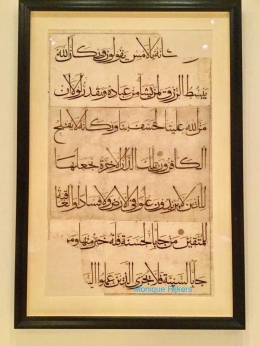 مكانه بالامس يقولون ويكأن الله
يبسط الرزق لمن يشا من عباده ويقدر لولا ان
من الله علينا لخسف بنا ويكأنه لا يفلح
الكافرون تلك الدار الاخرة نجعلها
للذين لا يريدون علوا في الارض ولا فسادا والعاقبة
للمتقين من جا بالحسنة فله خير منها ومن
جا بالسيئة فلا يجزى الذين عملوا
Monique